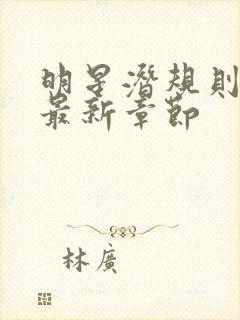 明星潛規則
最新章節
林廣